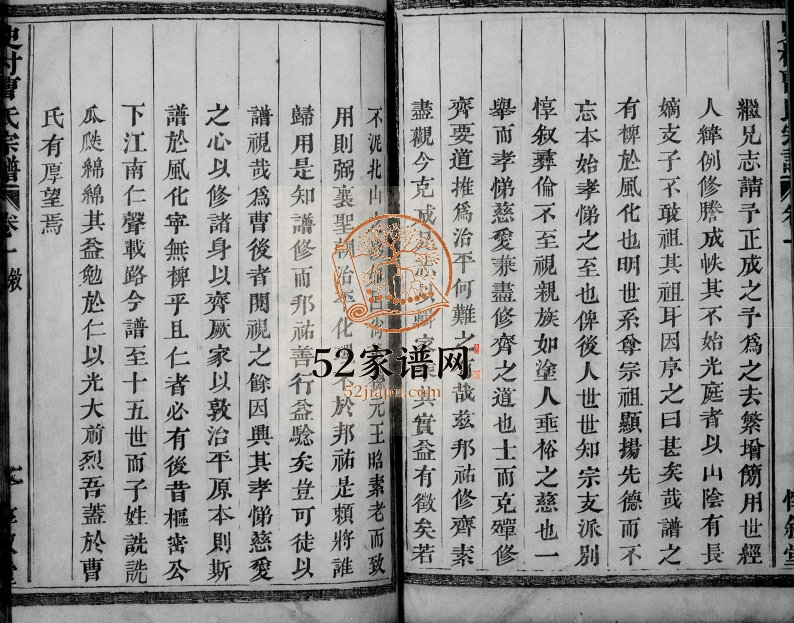 繼兄志請予正成之予爲之去繁增簡用世經
人緯例修謄成帙其不始光庭者以山陰有長
嫡支子不敢祖其祖耳因序之曰甚矣哉譜之
有裨於風化也明世系尊宗祖顯揚先德而不
忘本始孝悌之至也俾後人世世知宗支派別
惇叙彞倫不至視親族如塗人垂裕之慈也一
舉而孝悌慈愛兼盡修齊之道也士而克殫修
齊要道推爲治平何難之哉兹邦祐修齊素
盡觀今克成其實益有徵矣若
不泥北山元王昭素老而致
用則弼襄聖朝治平化於邦祐是賴將誰
歸用是知譜修而邦祐善行益驗矣豈可徒以
譜視哉爲曹後者閱視之餘因興其孝悌慈愛
之心以修諸身以齊厥家以敦治平原本則斯
譜於風化寜無裨乎且仁者必有後昔樞密公
下江南仁聲載路今譜至十五世而子姓詵詵
瓜瓞綿綿其益勉於仁以光大前烈吾蓋於曹
氏有厚望焉
史村曹氏宗譜
卷一
52家谱网
52jiapu.com